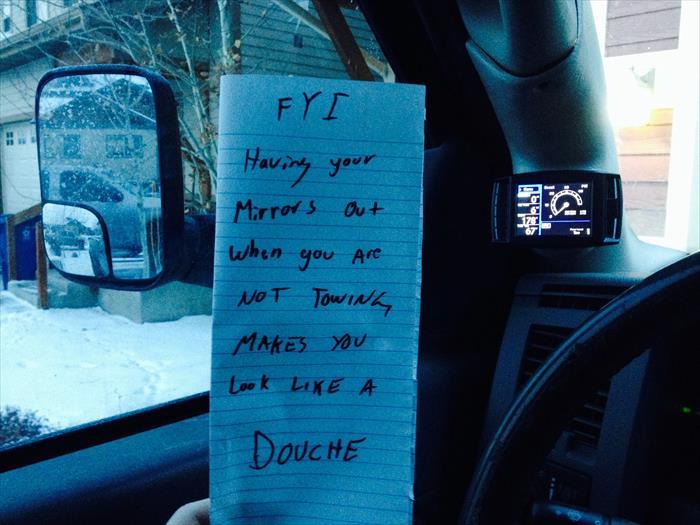 FYI
Having your
Mirrors Out
When you Are
NOT TOWING,
MAKES YOU
Look LIKE A
DOUCHE